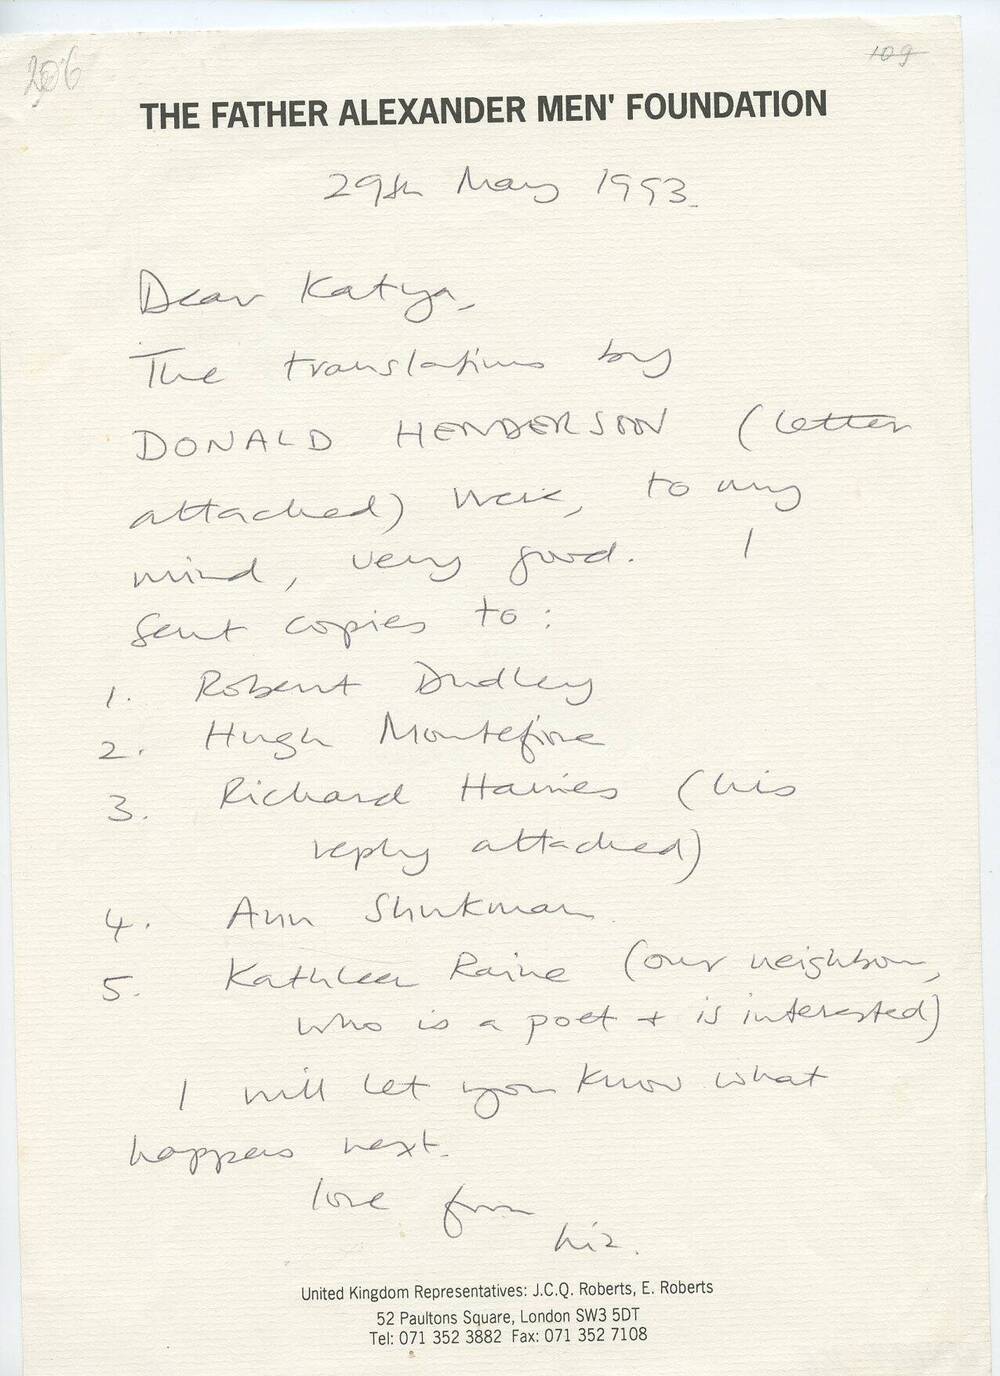 206
109
THE FATHER ALEXANDER MEN' FOUNDATION
29th May 1993.
Dear Katya,
The translations by
DONALD HENDERSON (letter
attached) were, to my
mind, very good. I
sent copies to:
1. Robert Dudley
2. Hugh Montefiore
3. Richard Haines (his
reply attached)
4. Ann Shukman
5. Kathleen Raine (our neighbour,
who is a poet + is interested)
I will let you know what
happens next.
love from
Liz.
United Kingdom Representatives: J.C.Q. Roberts, E. Roberts
52 Paultons Square, London SW3 5DT
Tel: 071 352 3882 Fax: 071 352 7108